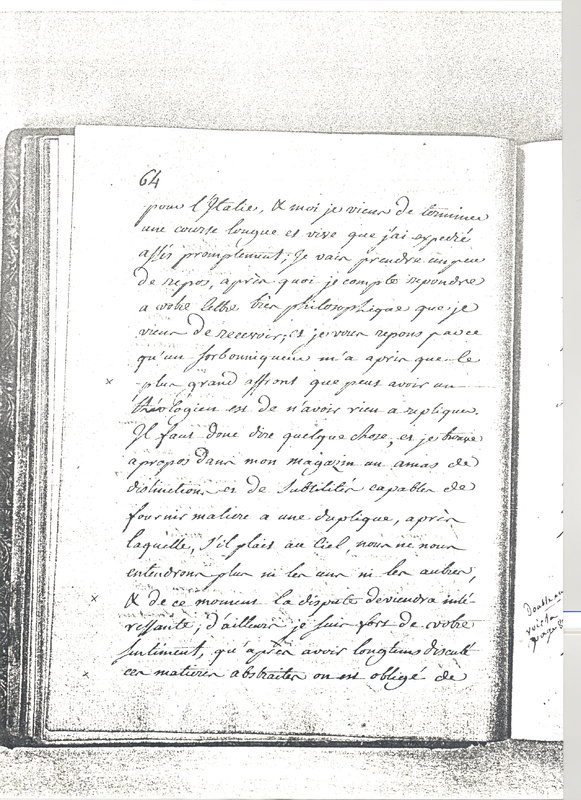 64
pour l'Italie, & moi je viens de terminer
une course longue et vive que j'ai expedié
assés promptement. Je vais prendre un peu
de repos, après quoi je compte repondre
a votre lettre très philosophique que je
viens de recevoir; et je vous repons parce
qu'un sorbonniqueur m'a apris que le
plus grand affront que peut avoir un
théologien est de n'avoir rien a repliquer.
Il faut donc dire quelque chose, et je trouve
apropos dans mon magazin un amas de
distinctions et de subtilités capables de
fournir matiere a une duplique, après
laquelle, s'il plait au Ciel, nous ne nous
entendrons plus ni les uns ni les autres,
& de ce moment la dispute deviendra inté-
ressante; d'ailleurs je suis fort de votre
sentiment, qu'après avoir longtems discuté
ces matieres abstraites on est obligé de